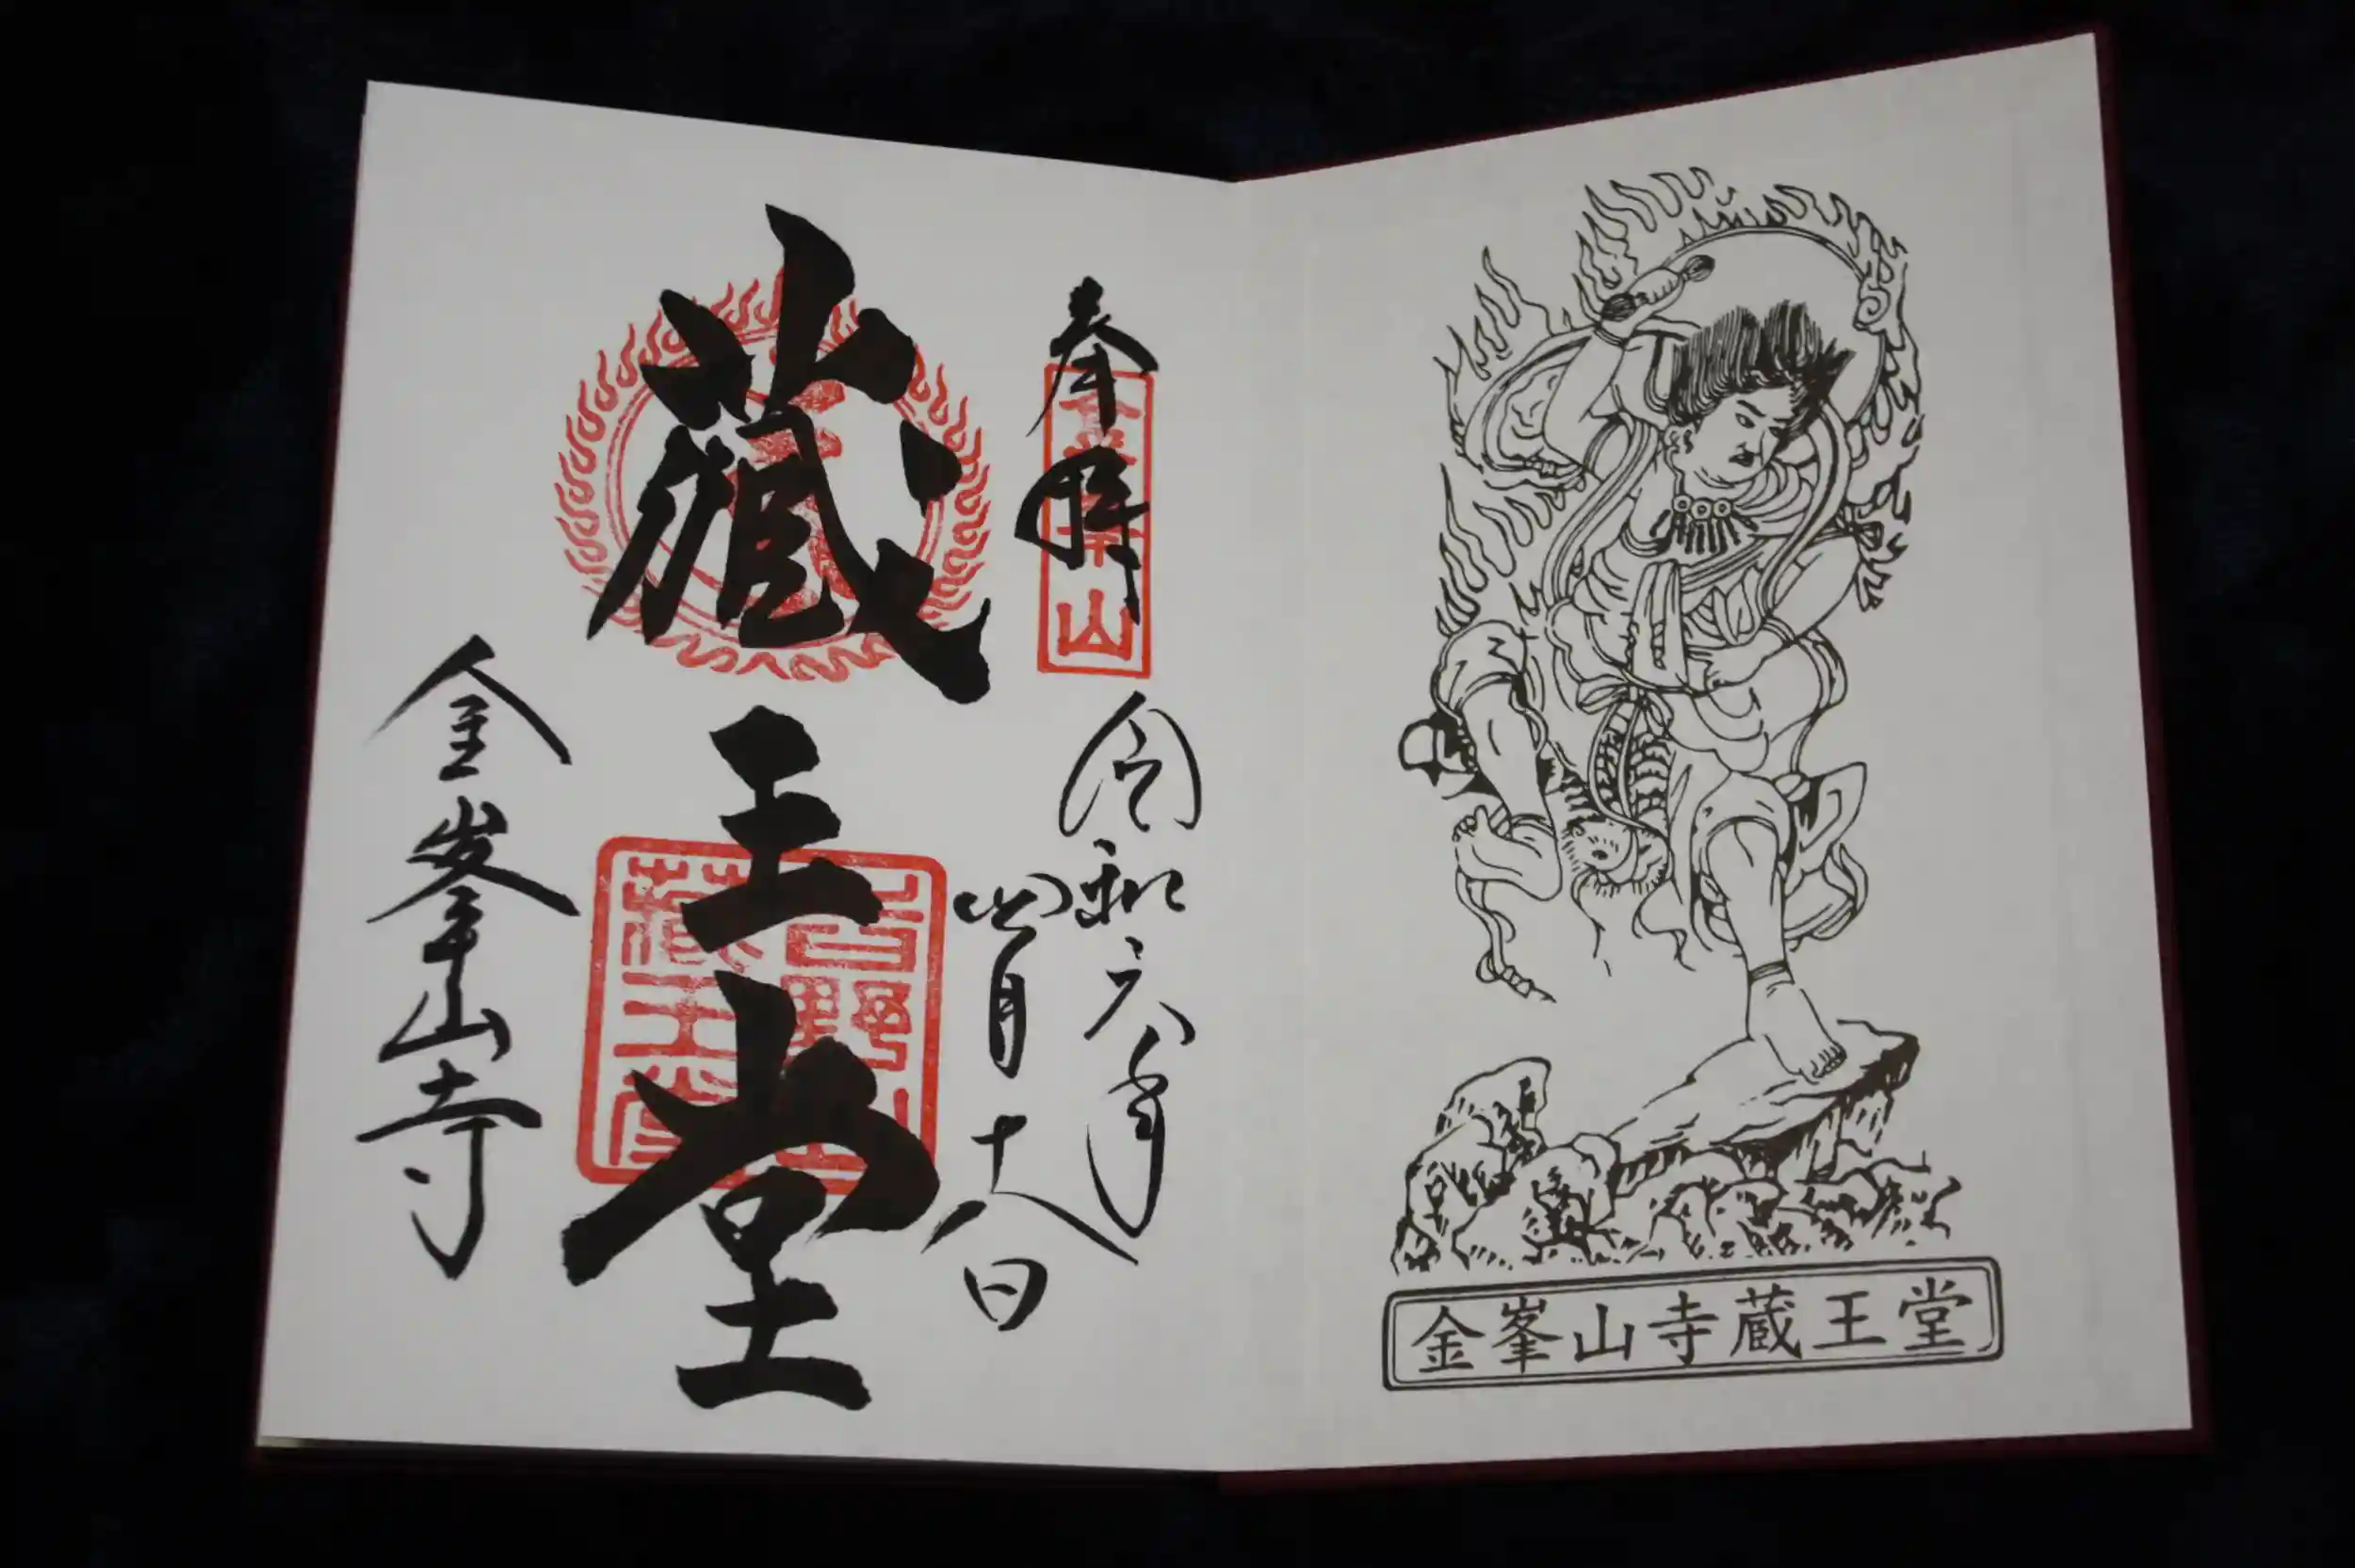 奉拝
令和六年
四月十八日
蔵王堂
金峯山寺
吉野山
蔵王堂
山
金峯山寺蔵王堂